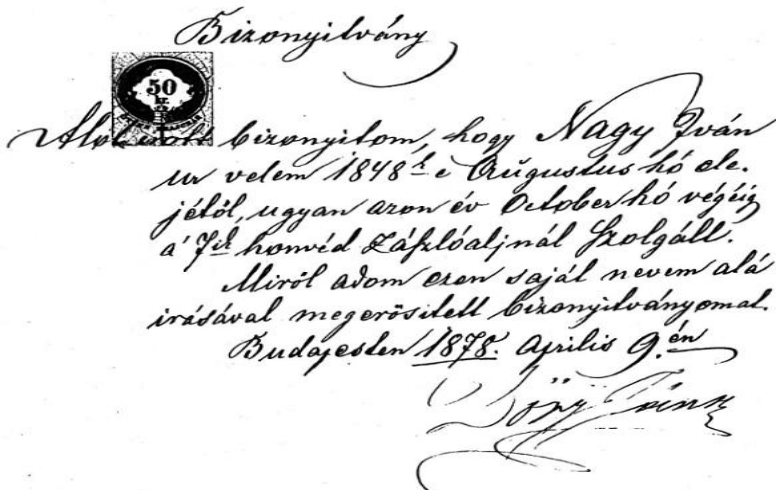 Bizonyitvány
50
kr.
Alolirott bizonyitom, hogy Nagy Iván
ur velem 1848ik é Augustus hó ele-
jétől, ugyan azon év October hó végéig
a' 7ik honvéd Zászlóaljnál szolgált.
Miröl adom ezen saját nevem alá
irásával megerősitett bizonyitványomat.
Budapesten 1878. Aprilis 9.én